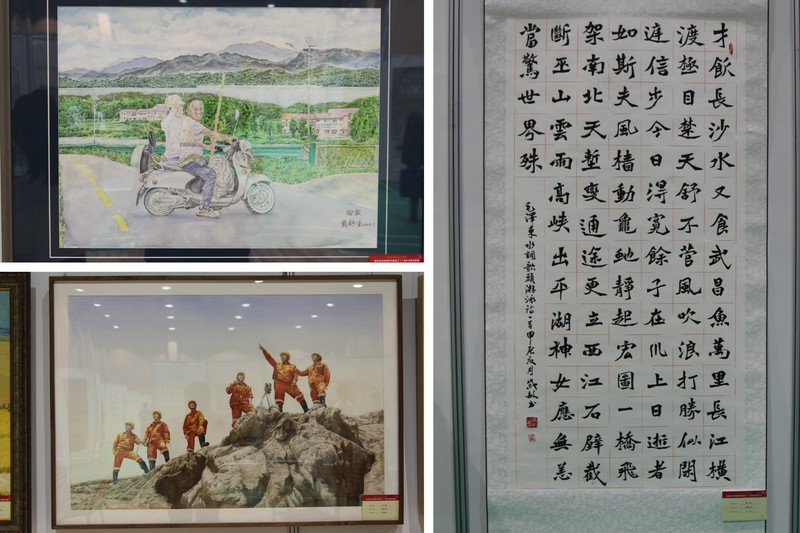 回家
才飲長沙水又食武昌魚萬里長江橫
渡極目楚天舒不管風吹浪打勝似閑
庭信步今日得寬餘子在川上曰逝者
如斯夫風檣動龜虵靜起宏圖一橋飛
架南北天塹變通途更立西江石壁截
斷巫山雲雨高峽出平湖神女應無恙
當驚世界殊
毛澤東水調歌頭游泳詞一首甲辰